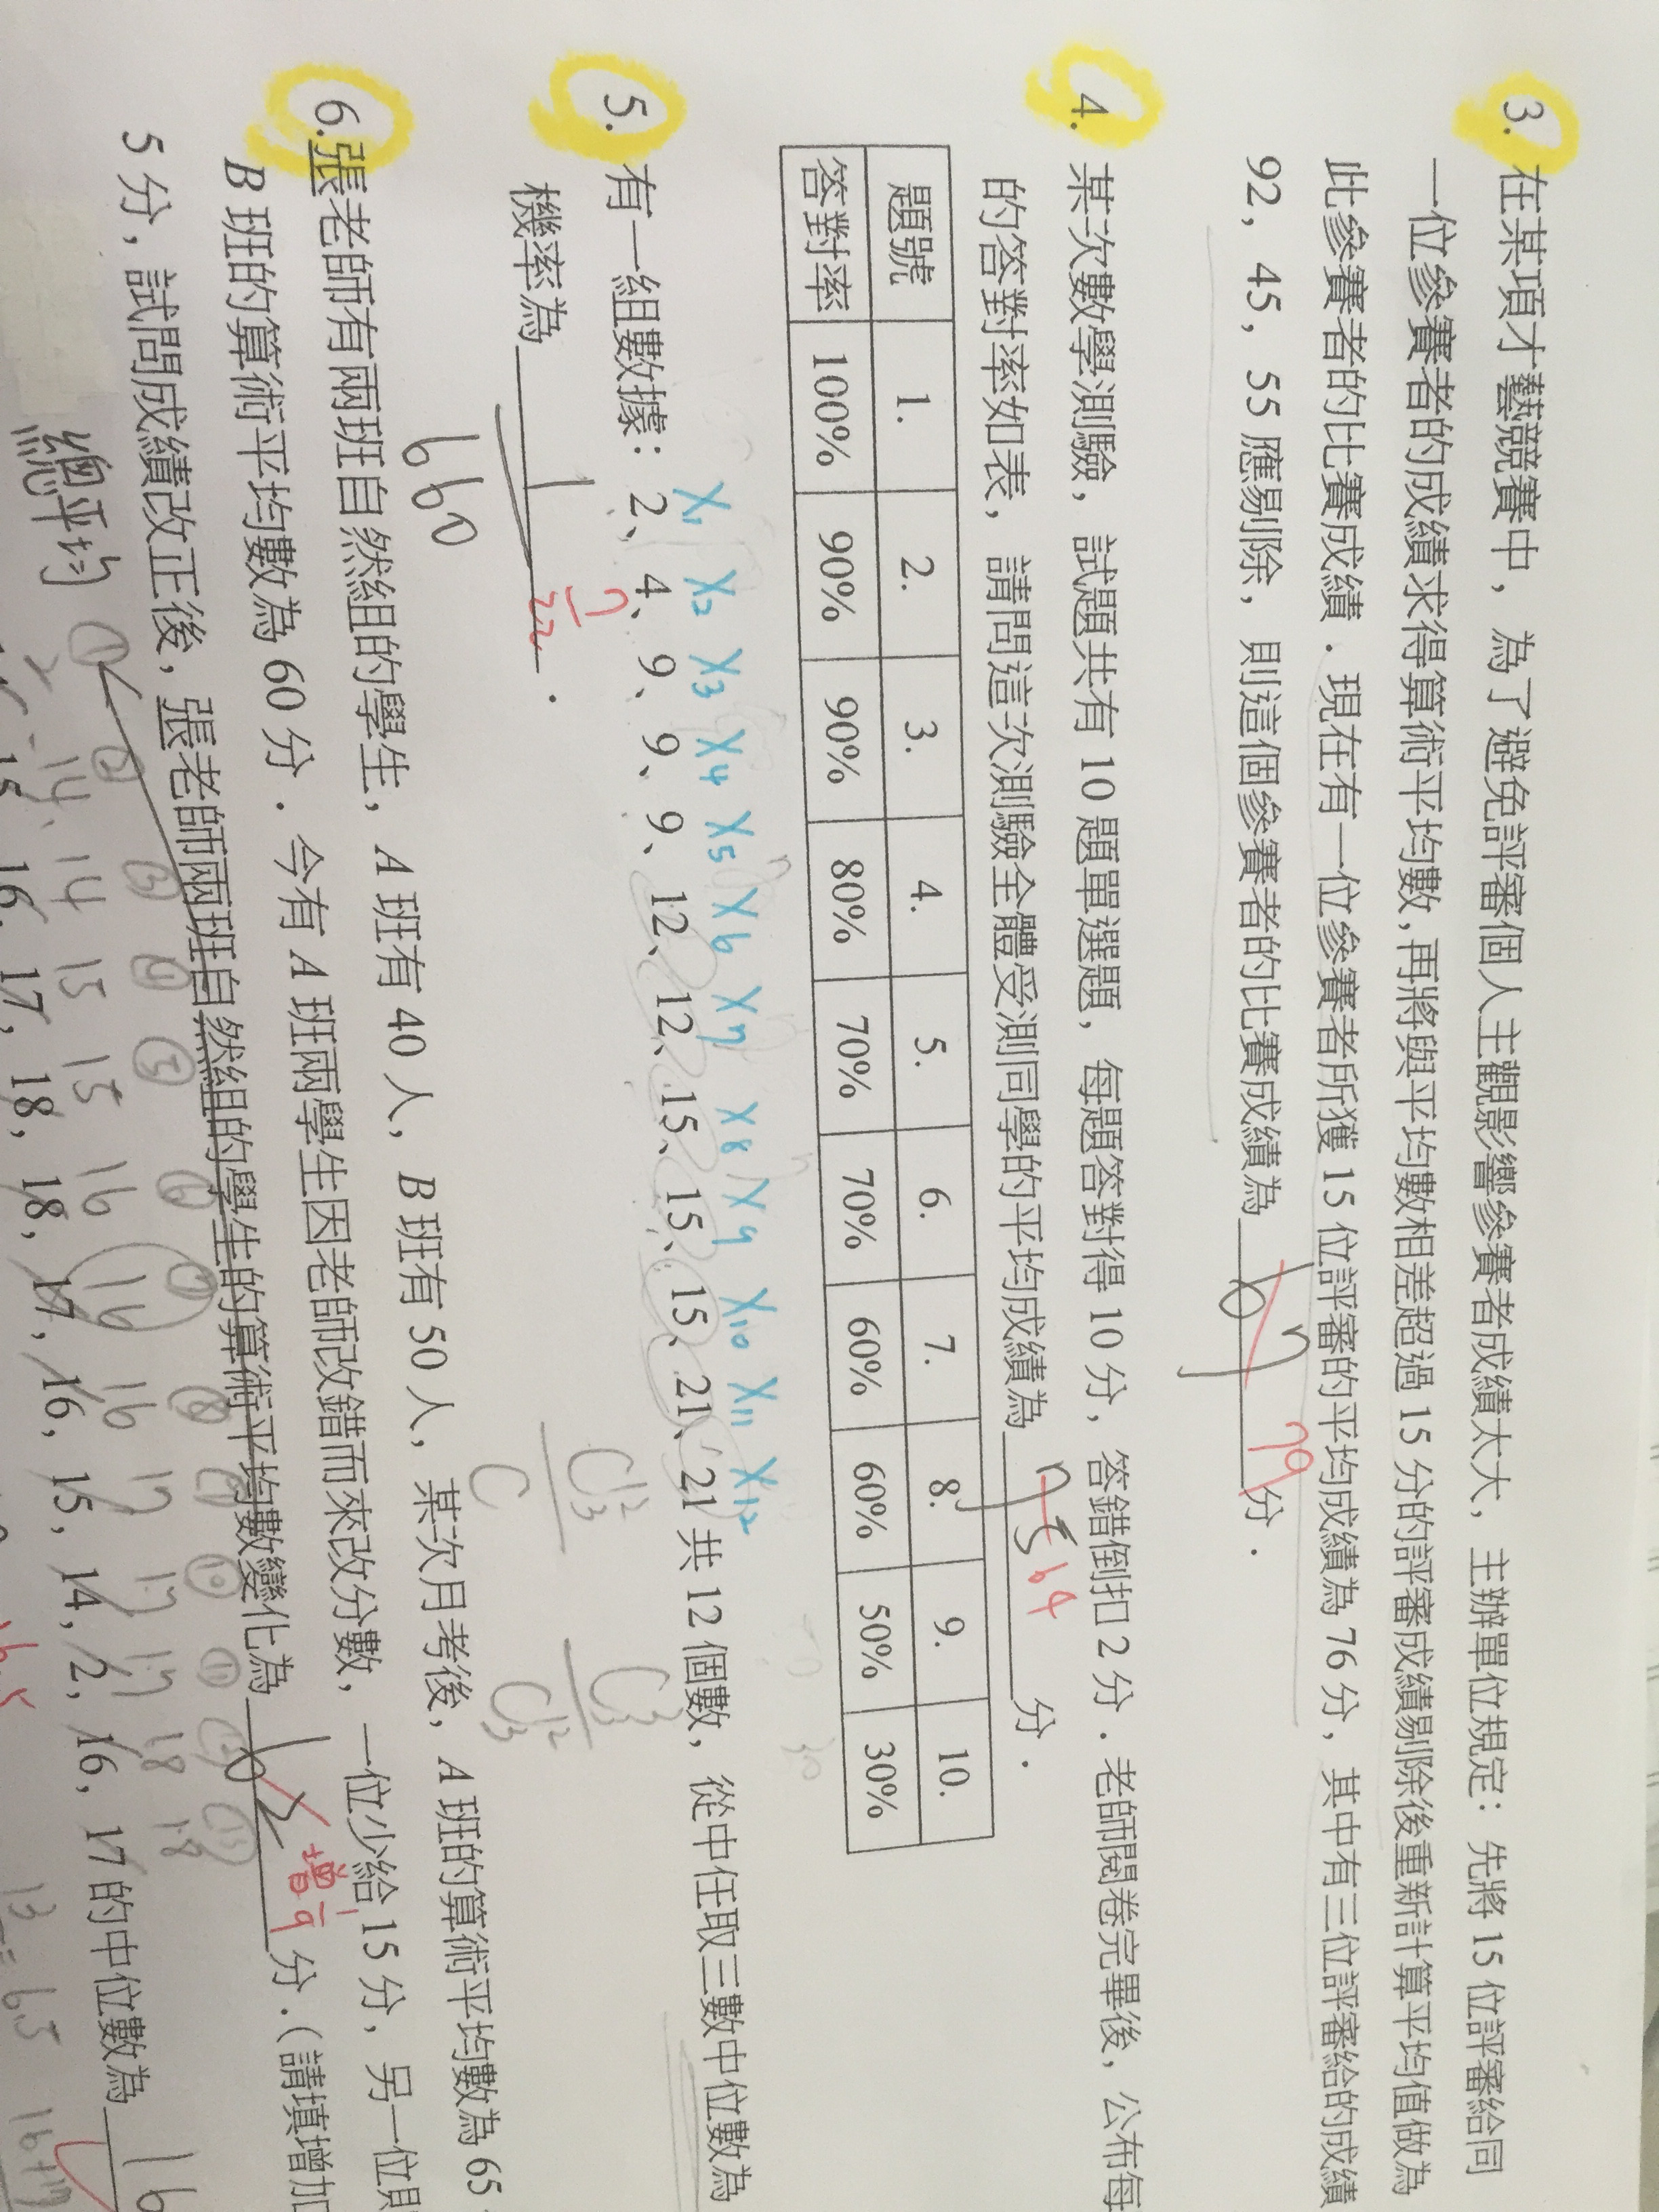 3. 在某項才藝競賽中，為了避免評審個人主觀影響參賽者成績太大，主辦單位規定：先將 15 位評審給同
一位參賽者的成績求得算術平均數，再將與平均數相差超過 15 分的評審成績剔除後重新計算平均值做為
此參賽者的比賽成績．現在有一位參賽者所獲 15 位評審的平均成績為 76 分，其中有三位評審給的成績
92，45，55 應剔除，則這個參賽者的比賽成績為 67 79 分．
4. 某次數學測驗，試題共有 10 題單選題，每題答對得 10 分，答錯倒扣 2 分．老師閱卷完畢後，公布每
的答對率如表，請問這次測驗全體受測同學的平均成績為 75 64 分．
題號 1. 2. 3. 4. 5. 6. 7. 8. 9. 10.
答對率 100% 90% 90% 80% 70% 70% 60% 60% 50% 30%
X1 X2 X3 X4 X5 X6 X7 X8 X9 X10 X11 X12
5. 有一組數據：2、4、9、9、9、12、12、15、15、15、21、21 共 12 個數，從中任取三數中位數為
機率為 1/660 7/22 ．
6. 張老師有兩班自然組的學生，A 班有 40 人，B 班有 50 人，某次月考後，A 班的算術平均數為 65
B 班的算術平均數為 60 分．今有 A 班兩學生因老師改錯而來改分數，一位少給 15 分，另一位則
5 分，試問成績改正後，張老師兩班自然組的學生的算術平均數變化為 增 1/9 分．（請填增加
總平均
14 14 15 15 16 16 16 17 17 17 18 18
16, 17, 18, 18, 17, 16, 15, 14, 2, 16, 17 的中位數為 16